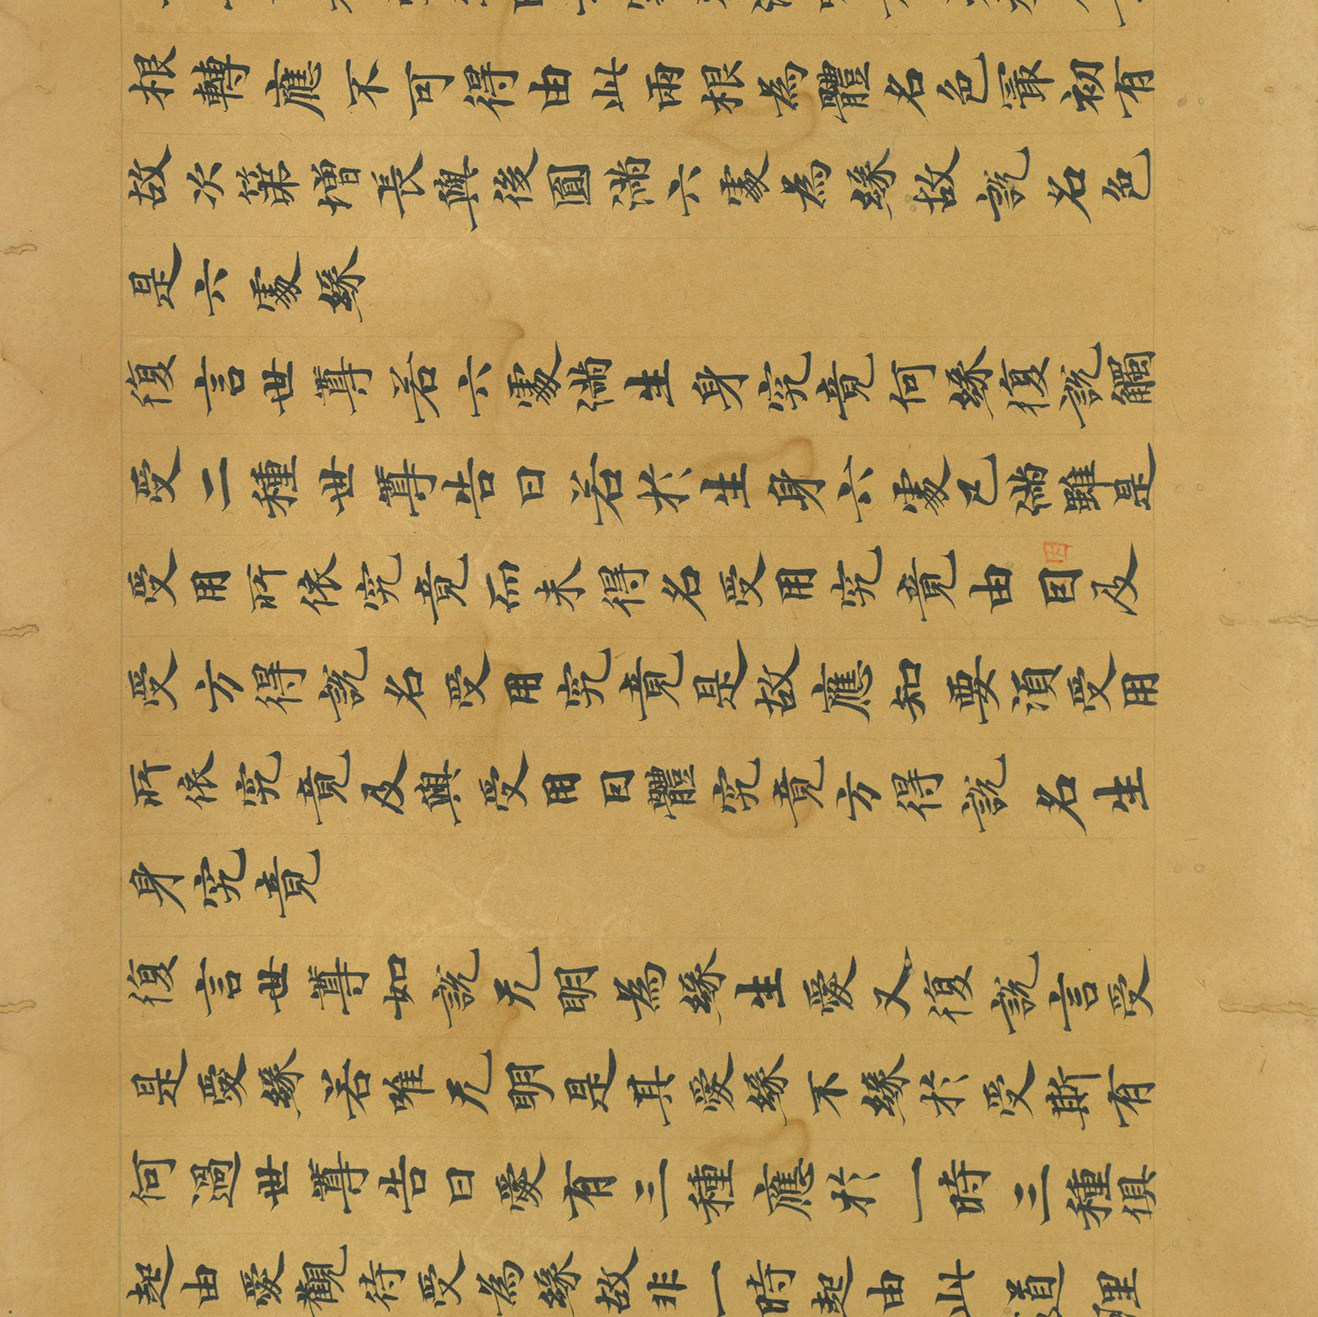 根轉應不可得由此兩根為體名色冣初有
故次第增長與後圓滿六處為緣故說名色
是六處緣
復言世尊若六處滿生身究竟何緣復說觸
受二種世尊告曰若於生身六處已滿雖是
受用所依究竟而未得名受用究竟由囙及
因
受方得說名受用究竟是故應知要湏受用
所依究竟及與受用囙體究竟方得說名生
身究竟
復言世尊如說无明為緣生愛又復說言受
是愛緣若唯无明是其愛緣不緣於受斯有
何過世尊告曰愛有三種應於一時三種俱
起由愛觀待受為緣故非一時起由此道理